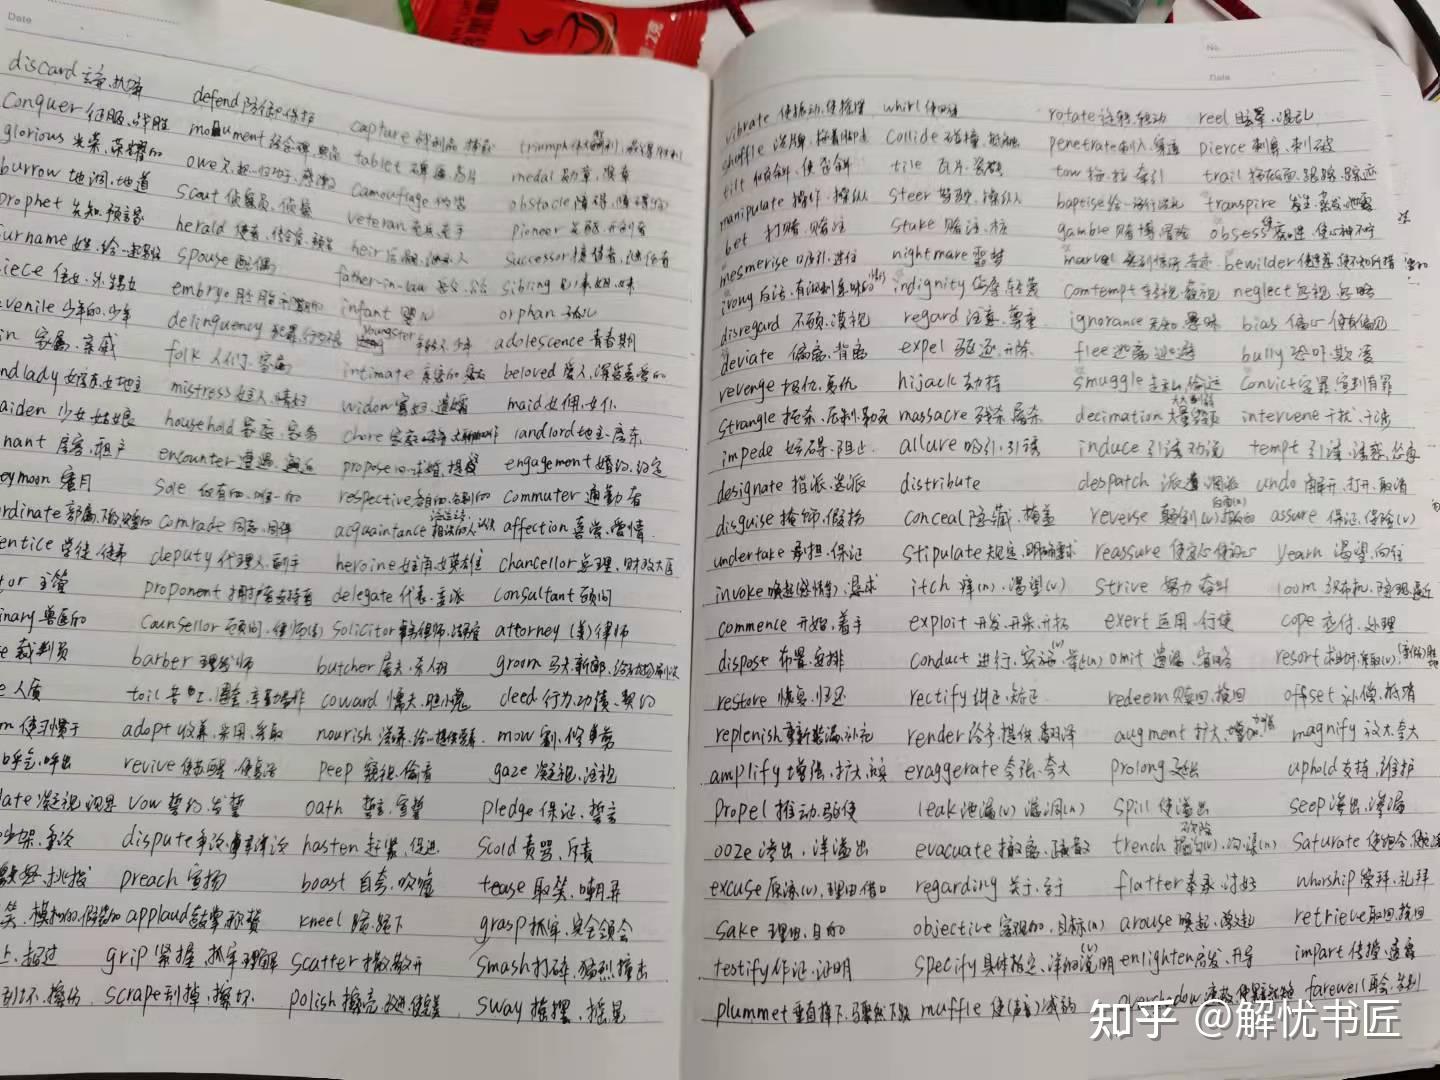 Date
discard
defend
conquer 征服、战胜
monument
capture
triumph
glorious 光荣、荣耀的
owe
tablet
medal 勋章、奖章
burrow 地洞、地道
scout 侦察员、侦察
camouflage 伪装
obstacle 障碍
prophet 先知、预言家
herald 使者
veteran 老兵、老手
pioneer
spouse 配偶
heir
successor 接替者、继任者
iece 侄女、外甥女
embryo
father-in-law 岳父、公公
sibling 兄弟姐妹
venile 少年的、少年
delinquency
infant 婴儿
orphan 孤儿
in 家属、亲戚
folk 人们、家属
youngster 年轻人、少年
adolescence 青春期
ndlady 女房东、女地主
mistress 女主人、情妇
intimate 亲密的、密友
beloved 爱人、深受喜爱的
aiden 少女、姑娘
household 家庭、家务
widow 寡妇、遗孀
maid 女佣、女仆
nant 房客、租户
encounter 遭遇、邂逅
chore 家务
landlord 地主、房东
eymoon 蜜月
sole 仅有的、唯一的
propose 求婚、提议
engagement 婚约、约定
rdinate
comrade 同志、同伴
respective 各自的、分别的
commuter 通勤者
entice 学徒、徒弟
deputy 代理人、副手
acquaintance 相识的人、认识
affection 喜爱、爱情
tor 主管
proponent 拥护者、支持者
heroine 女主角、女英雄
chancellor 总理、财政大臣
inary 兽医的
counsellor 顾问、律师
delegate 代表、委派
consultant 顾问
e 裁判员
barber 理发师
solicitor
attorney (美)律师
e 人质
toil 苦工
butcher 屠夫、杀人犯
groom 马夫、新郎
m 使习惯于
adopt 收养、采用、采取
coward 懦夫、胆小鬼
deed 行为、功绩、契约
呼气、呼出
revive 使苏醒、使复活
nourish 滋养
mow 割、修剪
late 凝视、视界
vow 誓约、发誓
peep 窥视、偷看
gaze 凝视、注视
吵架、争论
dispute 争论、辩论
oath 誓言、宣誓
pledge 保证、誓言
激怒、挑拨
preach 宣扬
hasten 赶紧、促进
scold 责骂、斥责
applaud 鼓掌、称赞
boast 自夸、吹嘘
tease 取笑、嘲弄
上、超过
grip 紧握、抓牢、理解
kneel 跪、跪下
grasp 抓牢、完全领会
刮坏、擦伤
scrape 刮掉、擦坏
scatter 撒、散开
smash 打碎、猛烈撞击
polish 擦亮、改进、使完美
sway 摇摆、摇晃
No.
Date
vibrate 使振动、使摇摆
whirl 使回旋
rotate 旋转、转动
reel 眩晕、混乱
shuffle 洗牌、拖着脚走
collide 碰撞、抵触
penetrate 刺入、穿透
pierce 刺穿、刺破
tilt 倾斜、使歪斜
tile 瓦片、瓷砖
tow 拖、拉、牵引
trail 拖在后面、跟踪、踪迹
manipulate 操作、操纵
steer 驾驶、操纵
baptise 给…施行洗礼
transpire 发生、蒸发、泄露
bet 打赌、赌注
stake 赌注、桩
gamble 赌博、冒险
obsess 使心神不宁
mesmerise 吸引、迷住
nightmare 噩梦
marvel 感到惊讶、奇迹
bewilder 使迷惑、使不知所措
irony 反话、有讽刺意味的
indignity 侮辱、轻蔑
contempt 轻视、蔑视
neglect 忽视、忽略
disregard 不顾、漠视
regard 注意、尊重
ignorance 无知、愚昧
bias 偏心、使有偏见
deviate 偏离、背离
expel 驱逐、开除
flee 逃离、逃避
bully 恐吓、欺凌
revenge 报仇、复仇
hijack 劫持
smuggle 走私、偷运
convict 定罪、宣判有罪
strangle 扼杀、压制、勒死
massacre 残杀、屠杀
decimation 大量毁灭
intervene 干扰、干涉
impede 妨碍、阻止
allure 吸引、引诱
induce 引诱、劝说
tempt 引诱、诱惑、怂恿
designate 指派、选派
distribute
despatch 派遣、调派
undo 解开、打开、取消
disguise 掩饰、假扮
conceal 隐藏、掩盖
reverse 颠倒(v)、相反的
assure 保证、保险(v)
undertake 承担、保证
stipulate 规定、明确要求
reassure 使安心、使放心
yearn 渴望、向往
invoke 唤起(感情等)、恳求
itch 痒(n)、渴望(v)
strive 努力、奋斗
loom 织布机、隐现、逼近
commence 开始、着手
exploit 开发、开采、开拓
exert 运用、行使
cope 应付、处理
dispose 布置、安排
conduct 进行、实施(v)
omit 遗漏、省略
resort 求助于、采取(v)
restore 恢复、归还
rectify 纠正、矫正
redeem 赎回、挽回
offset 补偿、抵消
replenish 重新装满、补充
render 给予、提供、翻译
augment 扩大、增加
magnify 放大、夸大
amplify 增强、扩大
exaggerate 夸张、夸大
prolong 延长
uphold 支持、维护
propel 推动、驱使
leak 泄漏(v)、漏洞(n)
spill 使溢出
seep 渗出、渗漏
ooze 渗出、洋溢出
evacuate 撤离、疏散
trench 挖沟(v)、沟渠(n)
saturate 使饱合
excuse 原谅(v)、理由、借口
regarding 关于、至于
flatter 奉承、讨好
whorship 崇拜、礼拜
sake 理由、目的
objective 客观的、目标(n)
arouse 唤起、激起
retrieve 取回、挽回
testify 作证、证明
specify 具体指定、详细说明(v)
enlighten 启发、开导
impart 传授、透露
plummet 垂直掉下、骤然下跌
muffle 使(声音)减弱
farewell 再会、告别
知乎 @解忧书匠